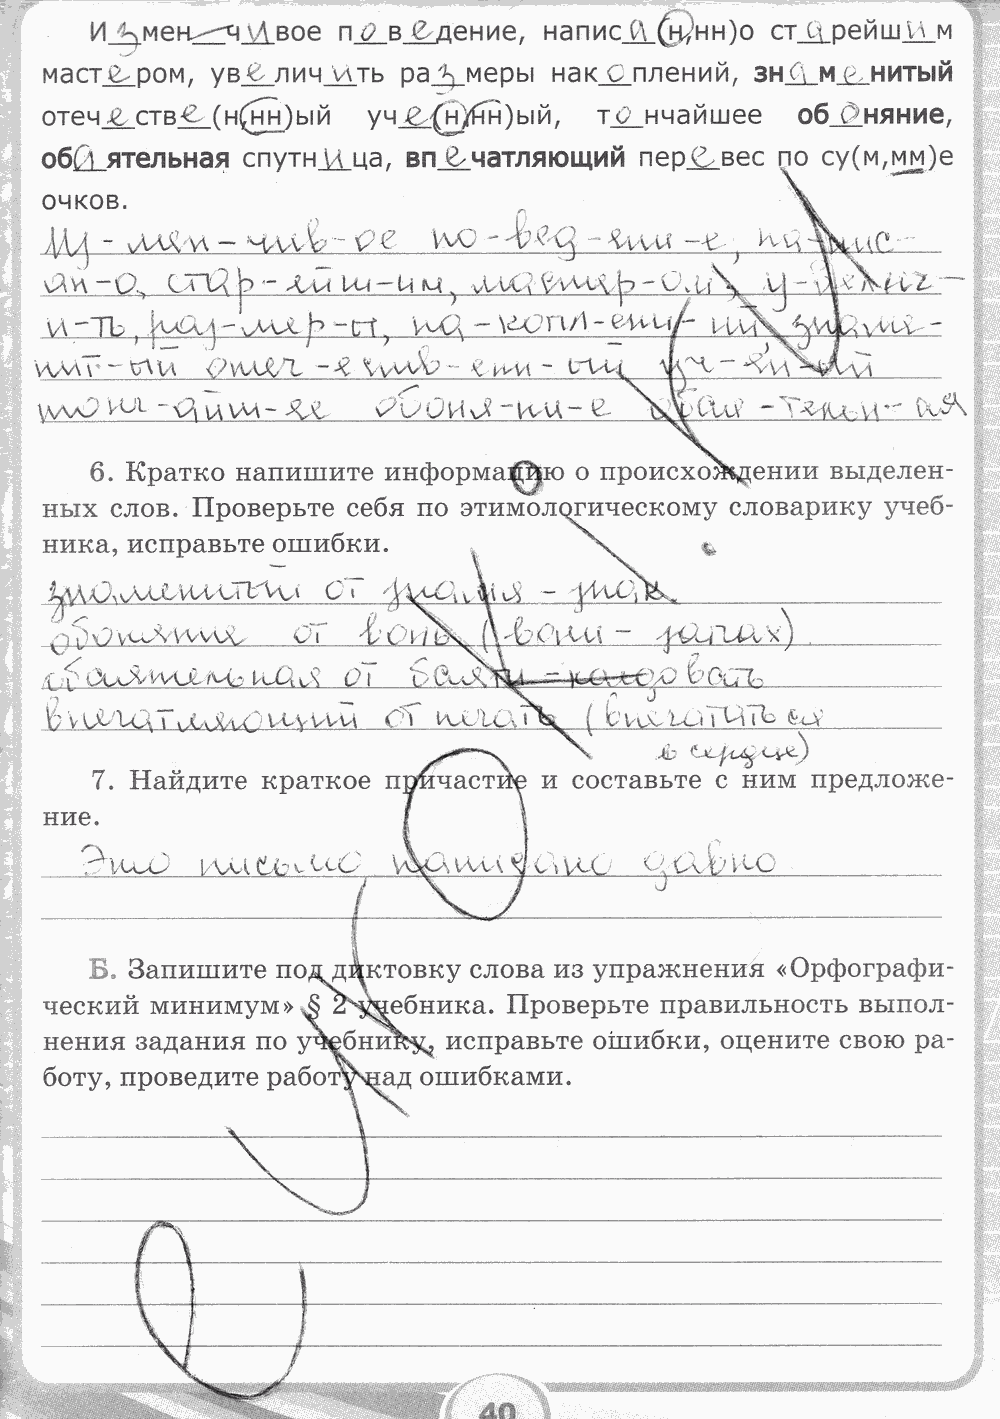 Изменчивое поведение, написа(н,нн)о старейшим
мастером, увеличить размеры накоплений, знаменитый
отечестве(н,нн)ый уче(н,нн)ый, тончайшее обоняние,
обаятельная спутница, впечатляющий перевес по су(м,мм)е
очков.
Из-мен-чив-ое по-вед-ени-е, на-пис-
ан-о, стар-ейш-им, мастер-ом, у-велич-
и-ть, раз-мер-ы, на-копл-ени-ий, знаме-
нит-ый отеч-еств-енн-ый уч-ён-ый
тонч-айш-ее обоня-ни-е обая-тельн-ая
6. Кратко напишите информацию о происхождении выделен-
ных слов. Проверьте себя по этимологическому словарику учеб-
ника, исправьте ошибки.
знаменитый от знамя - знак
обоняние от вонь (вони - запах)
обаятельная от баяти - колдовать
впечатляющий от печать (впечататься
в сердце)
7. Найдите краткое причастие и составьте с ним предложе-
ние.
Это письмо написано давно
Б. Запишите под диктовку слова из упражнения «Орфографи-
ческий минимум» § 2 учебника. Проверьте правильность выпол-
нения задания по учебнику, исправьте ошибки, оцените свою ра-
боту, проведите работу над ошибками.
еуроки.ру
40